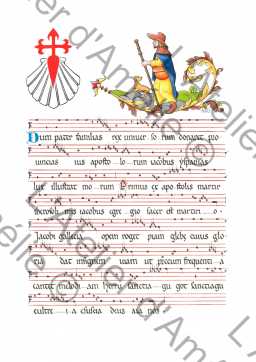 Dum pater familias rex univer sorum donaret pro
uincias ius aposto lorum iacobus yspanias
lux illustrat morum Primus ex apostolis martir
iherosolimis iacobus egregio sacer est martirio
Jacobi gallecia opem rogat piam glebe cuius glo
ria dat insignem uiam ut precum frequentia
cantet melodiam herru sanctiagu got sanctiagu
eultreia esuseia deus aia nos
L'Atelier d'Amélie ©